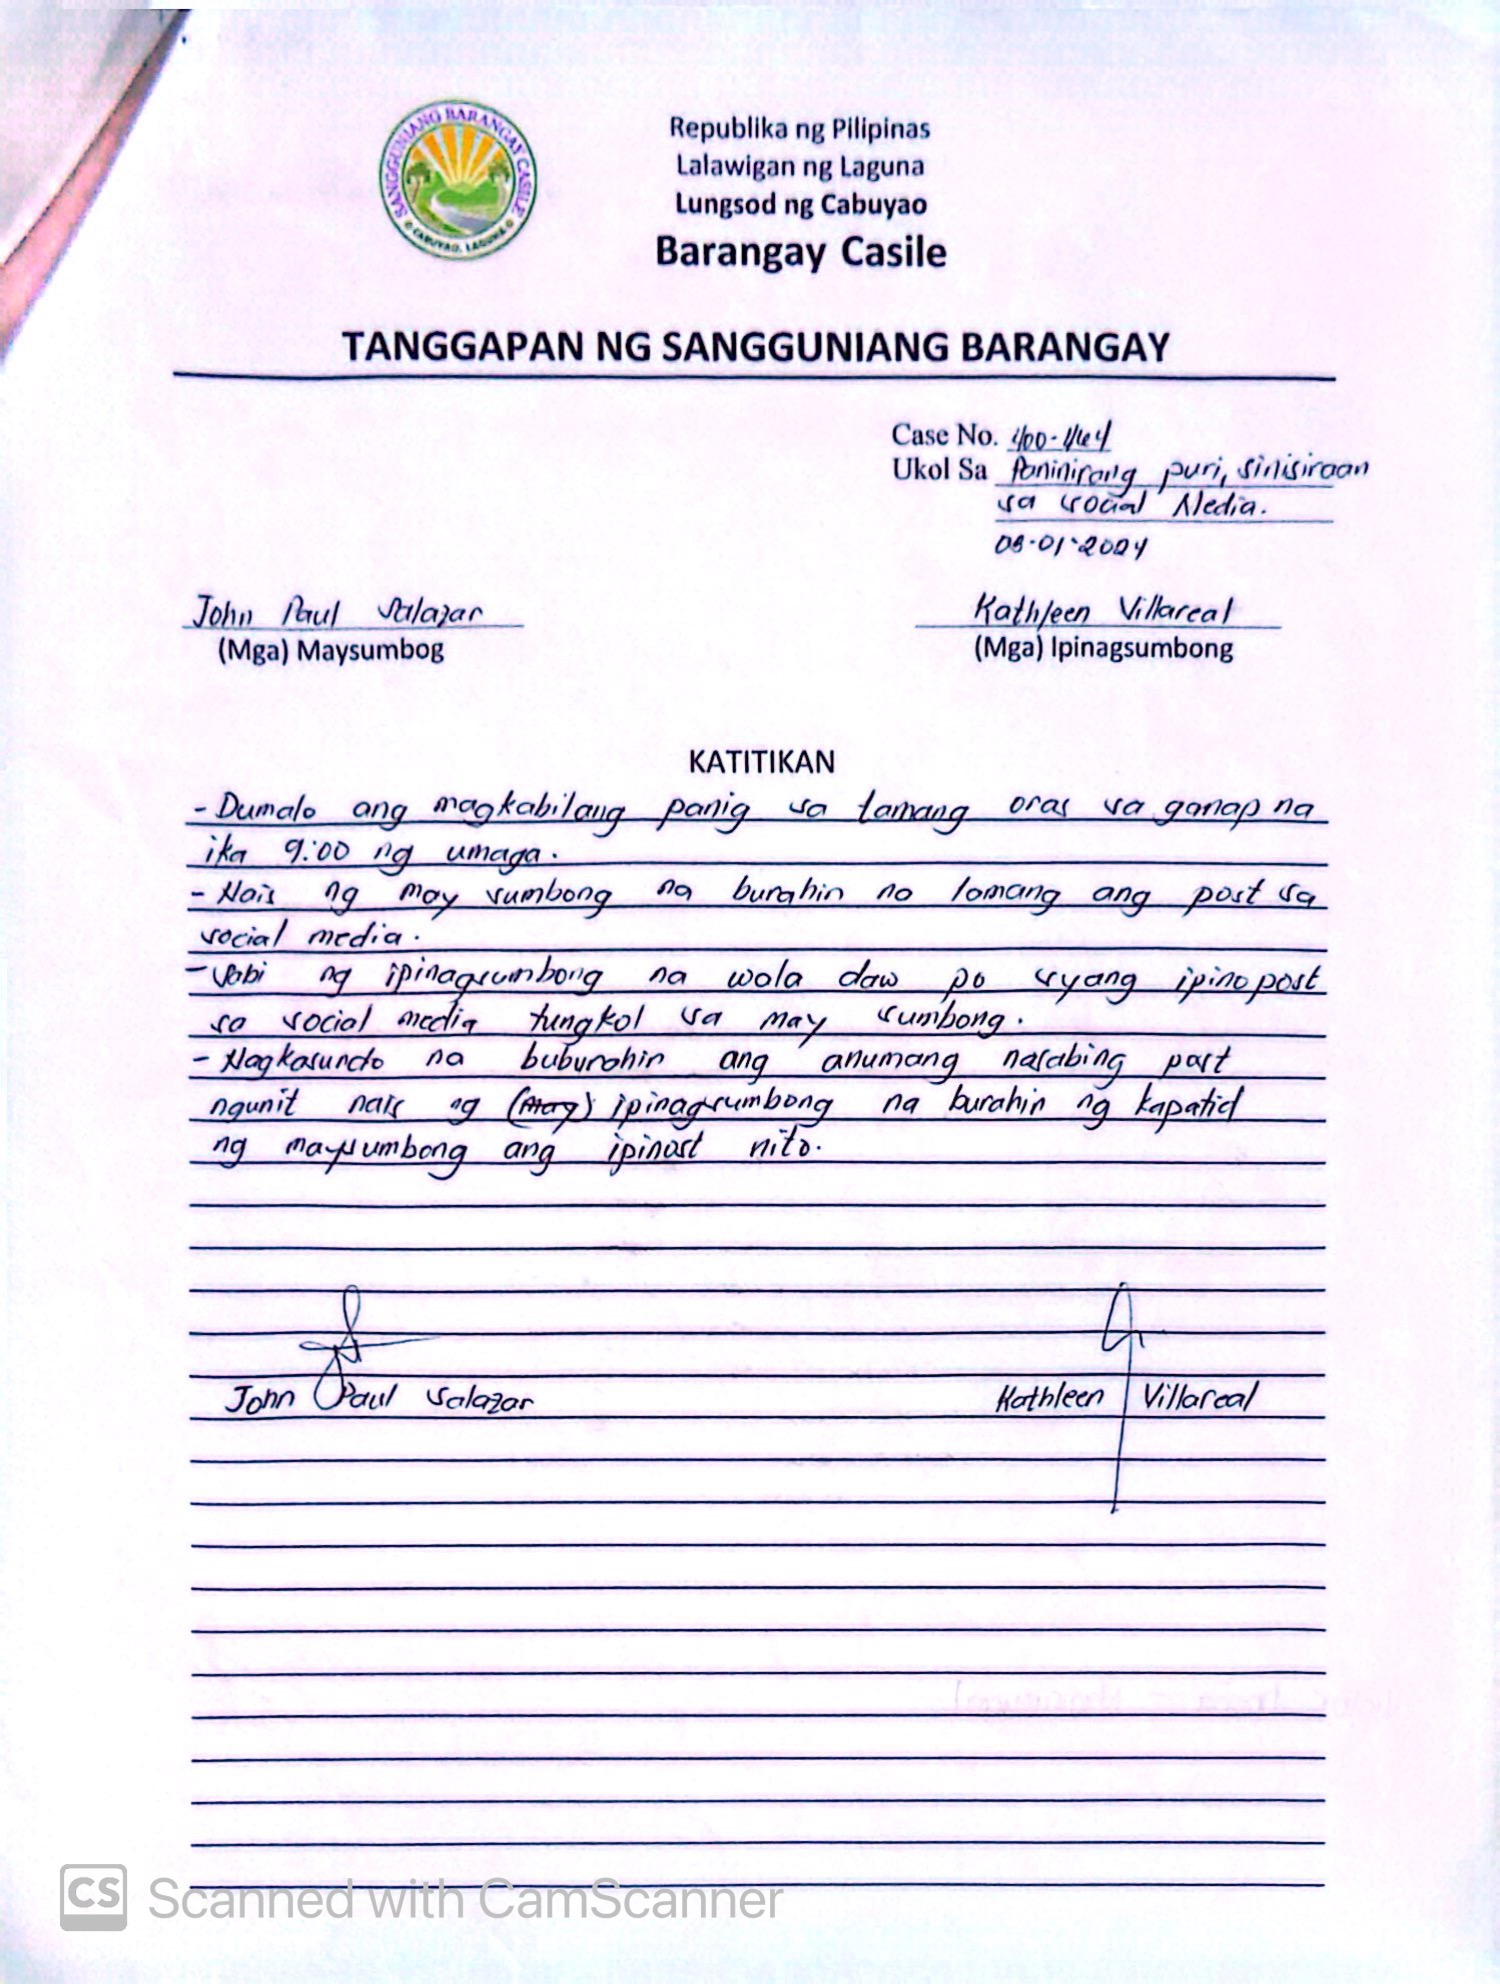 SANGGUNIANG BARANGAY CASILE
CABUYAO, LAGUNA
Republika ng Pilipinas
Lalawigan ng Laguna
Lungsod ng Cabuyao
Barangay Casile
TANGGAPAN NG SANGGUNIANG BARANGAY
Case No.
Ukol Sa Paninirang puri, sinisiraan
sa social Media.
John Paul Salazar
(Mga) Maysumbog
Kathleen Villareal
(Mga) Ipinagsumbong
KATITIKAN
- Dumalo ang magkabilang panig sa tamang oras sa ganap na
ika 9:00 ng umaga.
- Nais ng may sumbong na burahin na lamang ang post sa
social media.
- Sabi ng ipinagsumbong na wala daw po syang ipinopost
sa social media tungkol sa may sumbong.
- Nagkasundo na buburahin ang anumang nasabing post
ngunit nais ng (may) ipinagsumbong na burahin ng kapatid
ng maysumbong ang ipinost nito.
John Paul Salazar
Kathleen Villareal
CS Scanned with CamScanner